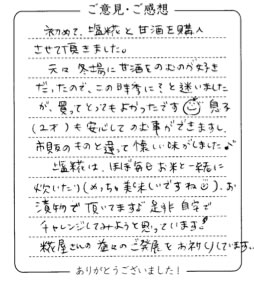 ご意見・ご感想
初めて、塩糀と甘酒を購入
させて頂きました。
元々冬場に甘酒をのむのが好き
だったので、この時季に?と迷いました
が、買ってとってもよかったです 息子
(2才)も安心してのむ事ができますし、
市販のものと違って懐しい味がしました♪
塩糀は、ほぼ毎日お米と一緒に
炊いたり(めっちゃ美味しいですね)、お
漬物で頂いてます 是非自宅で
チャレンジしてみようと思っています
糀屋さんの益々のご発展をお祈りしています。
ありがとうございました!